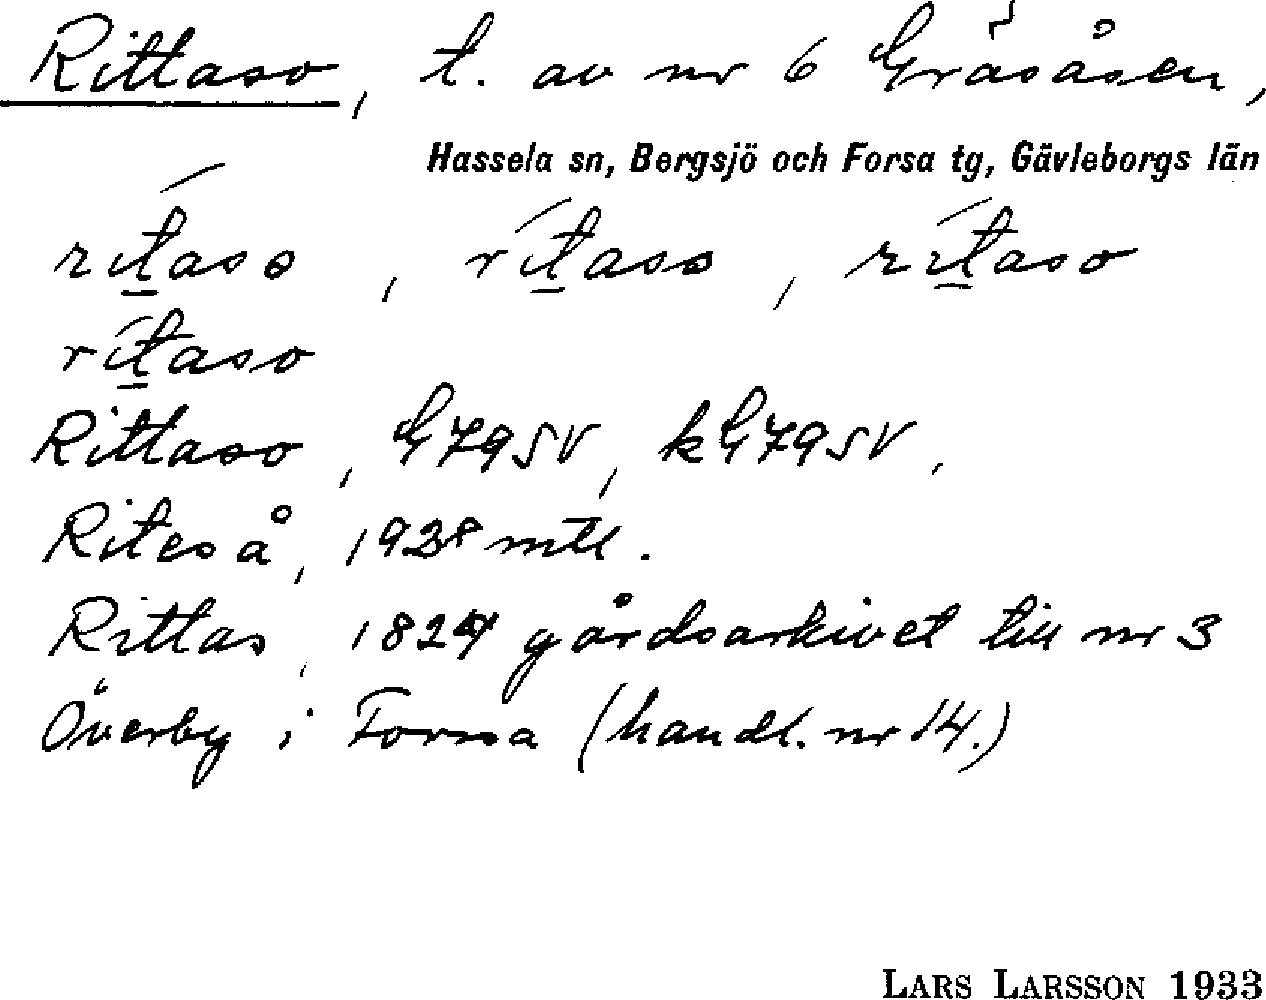 Rittaso, t. av nr 6 Gräsåsen,
Hassela sn, Bergsjö och Forsa tg, Gävleborgs län
rítaso , rítaso , rítaso
rítaso
Rittaso, G79SV, kG79SV.
Riteså, 1938 mtl.
Rittas, 1824 gårdsarkivet till nr 3
Överby i Forssa (handl. nr 14.)
LARS LARSSON 1933